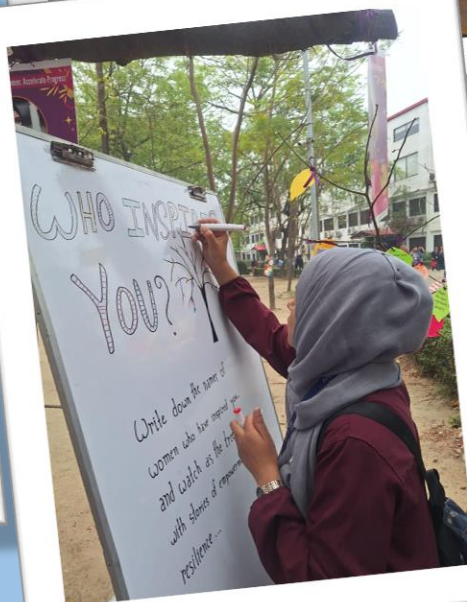 Accelerate Progress
WHO INSPIRES
YOU?
Write down the names of
women who have inspired you
and watch as the tree
with stories of
resilience...